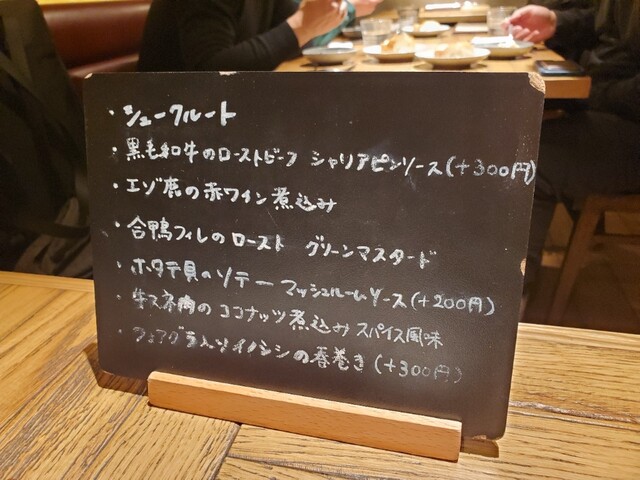 ・シュークルート
・黒毛和牛のローストビーフ シャリアピンソース(+300円)
・エゾ鹿の赤ワイン煮込み
・合鴨フィレのロースト グリーンマスタード
・ホタテ貝のソテー マッシュルームソース(+200円)
・牛スネ肉のココナッツ煮込みスパイス風味
・フォアグラ入りイノシシの春巻き(+300円)